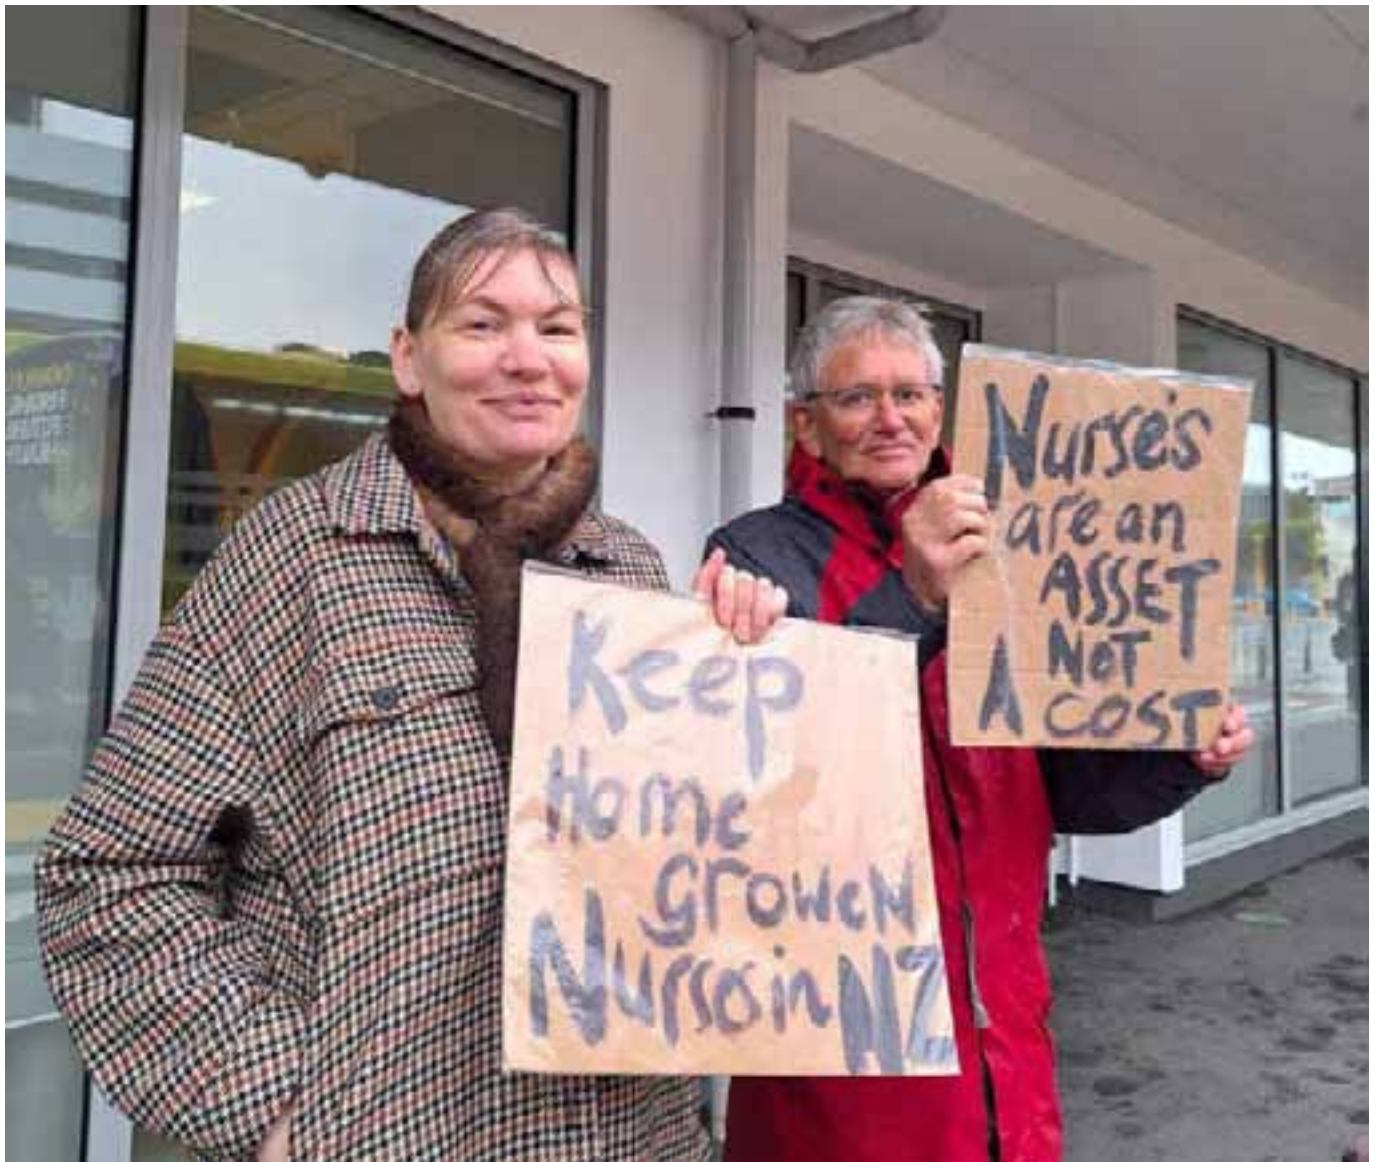 Keep
Home
growen
Nurses in NZ
Nurse's
are an
ASSET
NOT
A COST